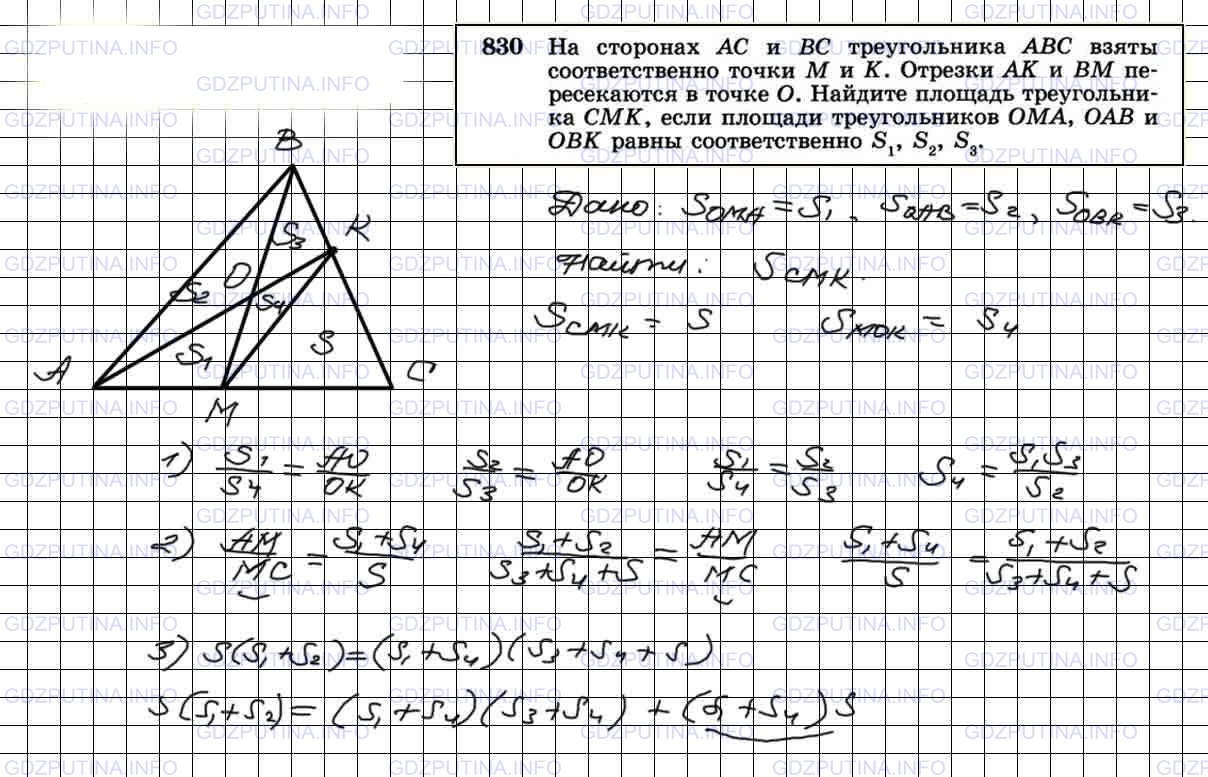 830 На сторонах AC и BC треугольника ABC взяты
соответственно точки M и K. Отрезки AK и BM пе-
ресекаются в точке O. Найдите площадь треугольни-
ка CMK, если площади треугольников OMA, OAB и
OBK равны соответственно S₁, S₂, S₃.
Дано: S_OMA = S₁, S_OAB = S₂, S_OBK = S₃.
Найти: S_CMK.
S_CMK = S S_MOK = S₄
B
K
S₃
O
S₂
S₄
S₁
S
A
C
M
1) S₁/S₄ = AO/OK S₂/S₃ = AO/OK S₁/S₄ = S₂/S₃ S₄ = S₁S₃/S₂
2) AM/MC = S₁+S₄/S S₁+S₂/S₃+S₄+S = AM/MC S₁+S₄/S = S₁+S₂/S₃+S₄+S
3) S(S₁+S₂)=(S₁+S₄)(S₃+S₄+S)
S(S₁+S₂)= (S₁+S₄)(S₃+S₄) + (S₁+S₄)S
GDZPUTINA.INFO